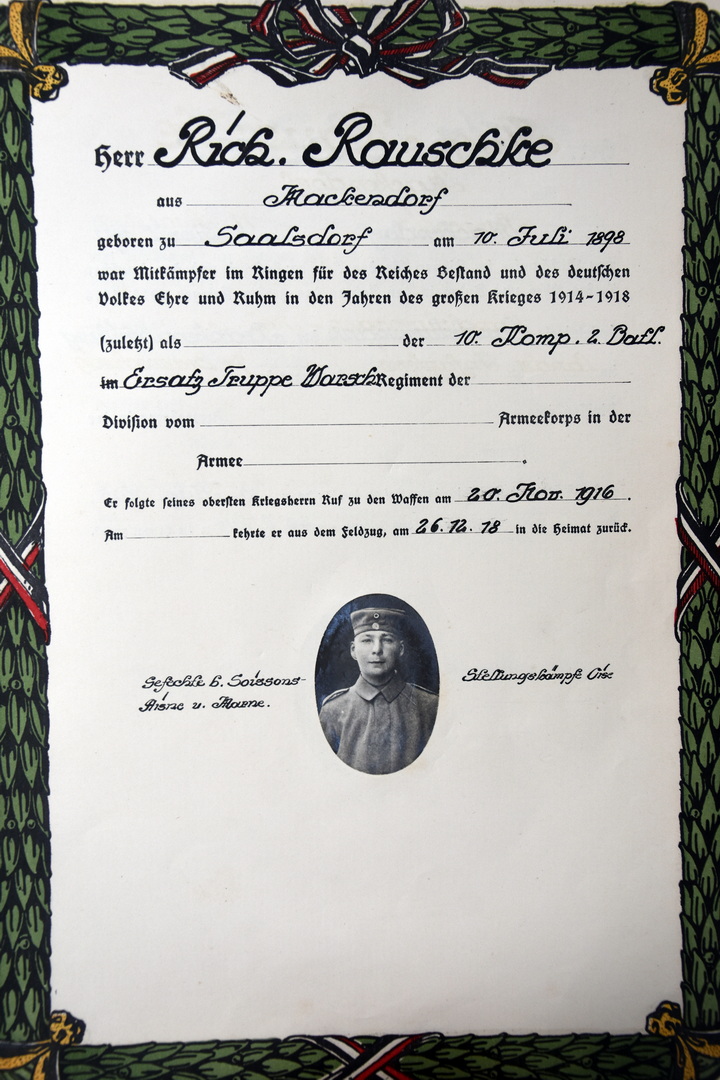 Herr Rich. Rauschke
aus Mackendorf
geboren zu Saalsdorf am 10. Juli 1898
war Mitkämpfer im Ringen für des Reiches Bestand und des deutschen
Volkes Ehre und Ruhm in den Jahren des großen Krieges 1914-1918
(zuletzt) als der 10. Komp. 2. Batl.
im Ersatz Truppe Warsch Regiment der
Division vom Armeekorps in der
Armee .
Er folgte seines obersten Kriegsherrn Ruf zu den Waffen am 20. Nov. 1916 .
Am kehrte er aus dem Feldzug, am 26.12.18 in die Heimat zurück.
Gefechte b. Soissons-
Aisne u. Marne.
Stellungskämpfe Oise